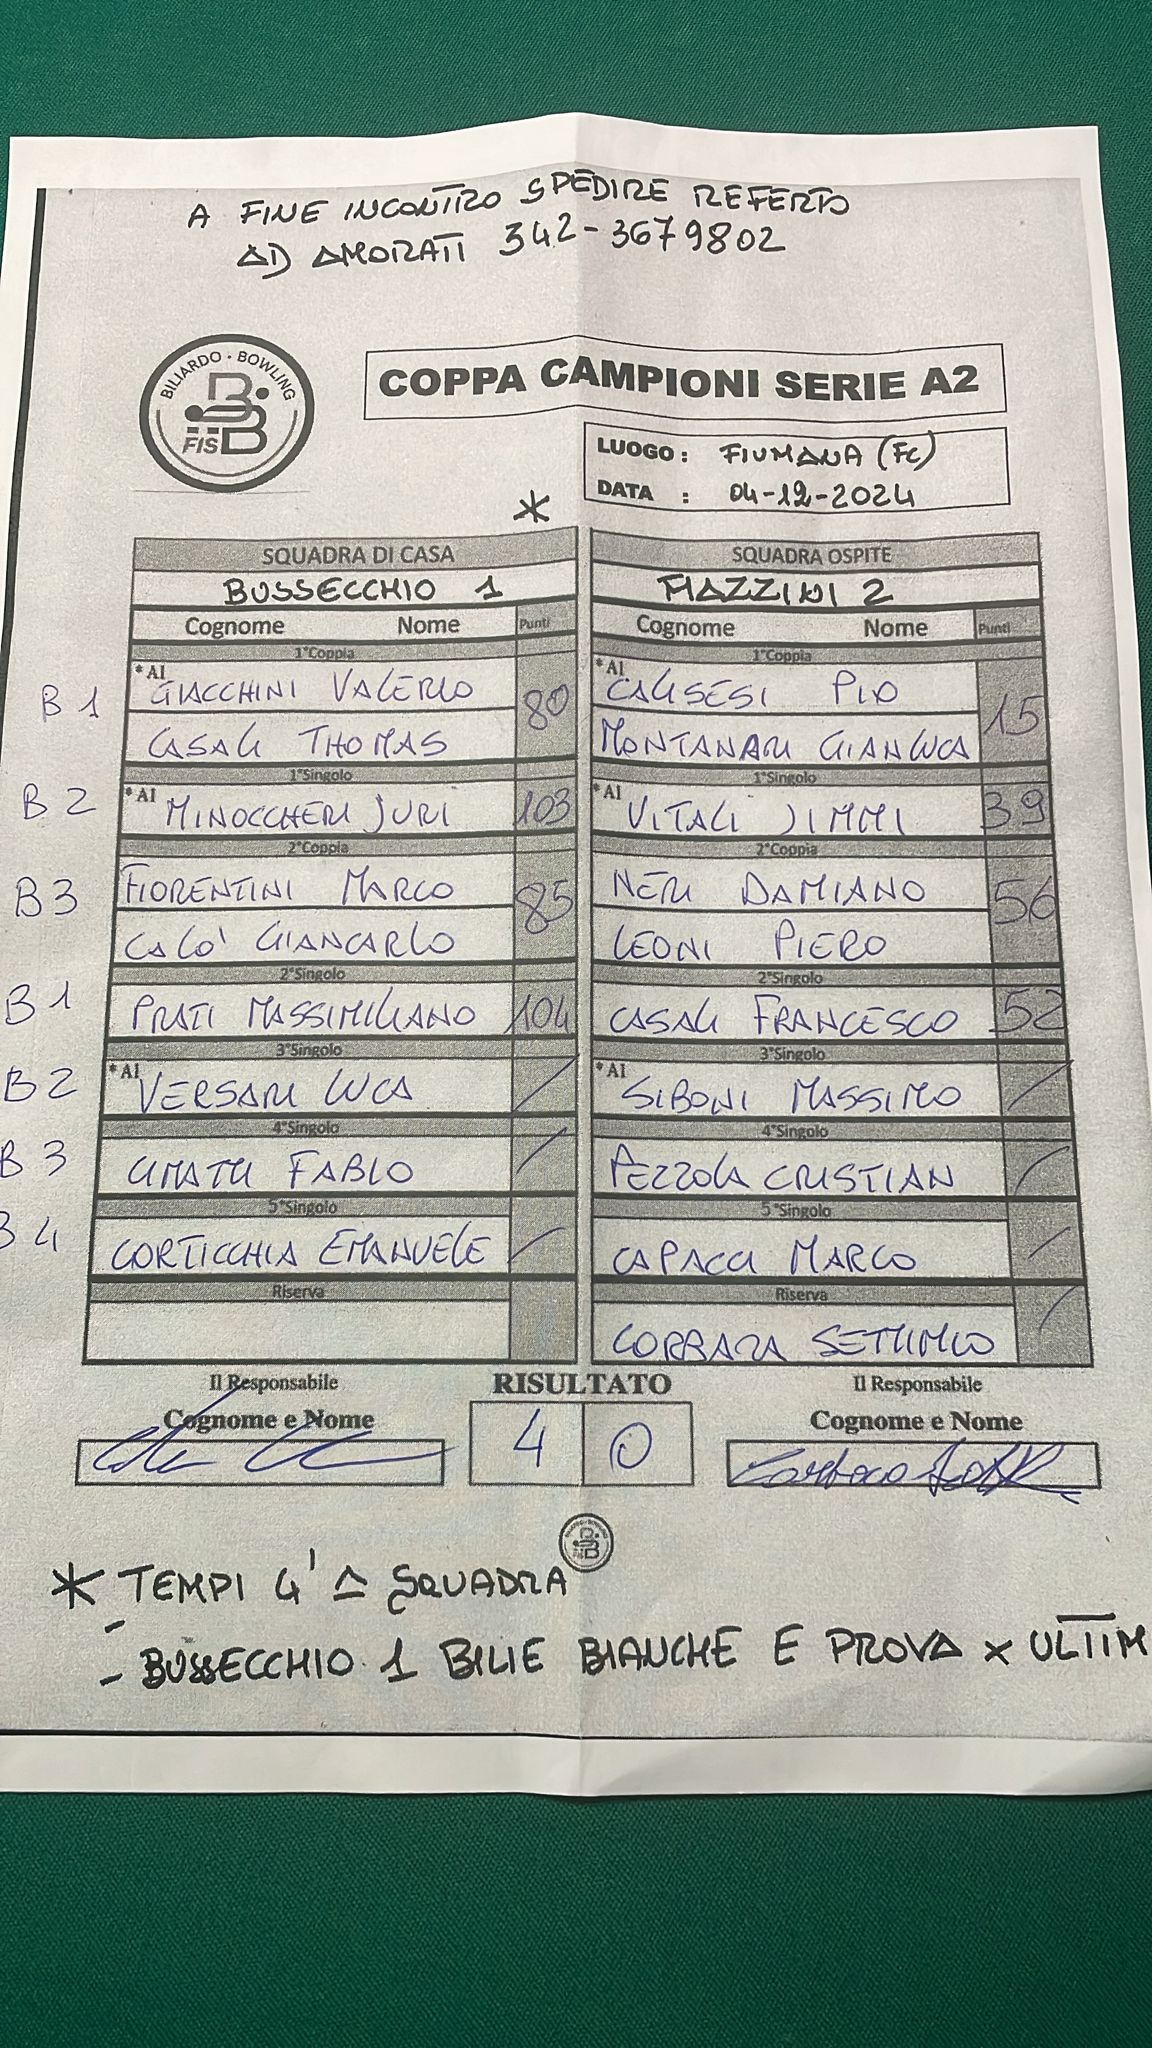 A FINE INCONTRO SPEDIRE REFERTO
AD AMORATI 342-3679802
BILIARDO • BOWLING
FISBB
COPPA CAMPIONI SERIE A2
LUOGO : FIUMANA (FC)
DATA : 04-12-2024
*
SQUADRA DI CASA SQUADRA OSPITE
BUSSECCHIO 1 MAZZINI 2
Cognome Nome Punti Cognome Nome Punti
1°Coppia 1°Coppia
B1 *AI GIACCHINI VALERIO 80 *AI CALISESI PIO 15
CASALI THOMAS MONTANARI GIANLUCA
1°Singolo 1°Singolo
B2 *AI MINOCCHERI JURI 103 *AI VITALI JIMMI 39
2°Coppia 2°Coppia
B3 FIORENTINI MARCO 85 NERI DAMIANO 56
CALO' GIANCARLO LEONI PIERO
2°Singolo 2°Singolo
B1 PRATI MASSIMILIANO 104 CASALI FRANCESCO 52
3°Singolo 3°Singolo
B2 *AI VERSARI LUCA / *AI SIBONI MASSIMO /
4°Singolo 4°Singolo
B3 FABIO / PEZZOLA CRISTIAN /
5°Singolo 5°Singolo
B4 CORTICCHIA EMANUELE / CAPACCI MARCO /
Riserva Riserva
CORBARA SETTIMIO /
Il Responsabile RISULTATO Il Responsabile
Cognome e Nome 4 0 Cognome e Nome
* TEMPI 4' A SQUADRA
- BUSSECCHIO 1 BILIE BIANCHE E PROVA x ULTIM